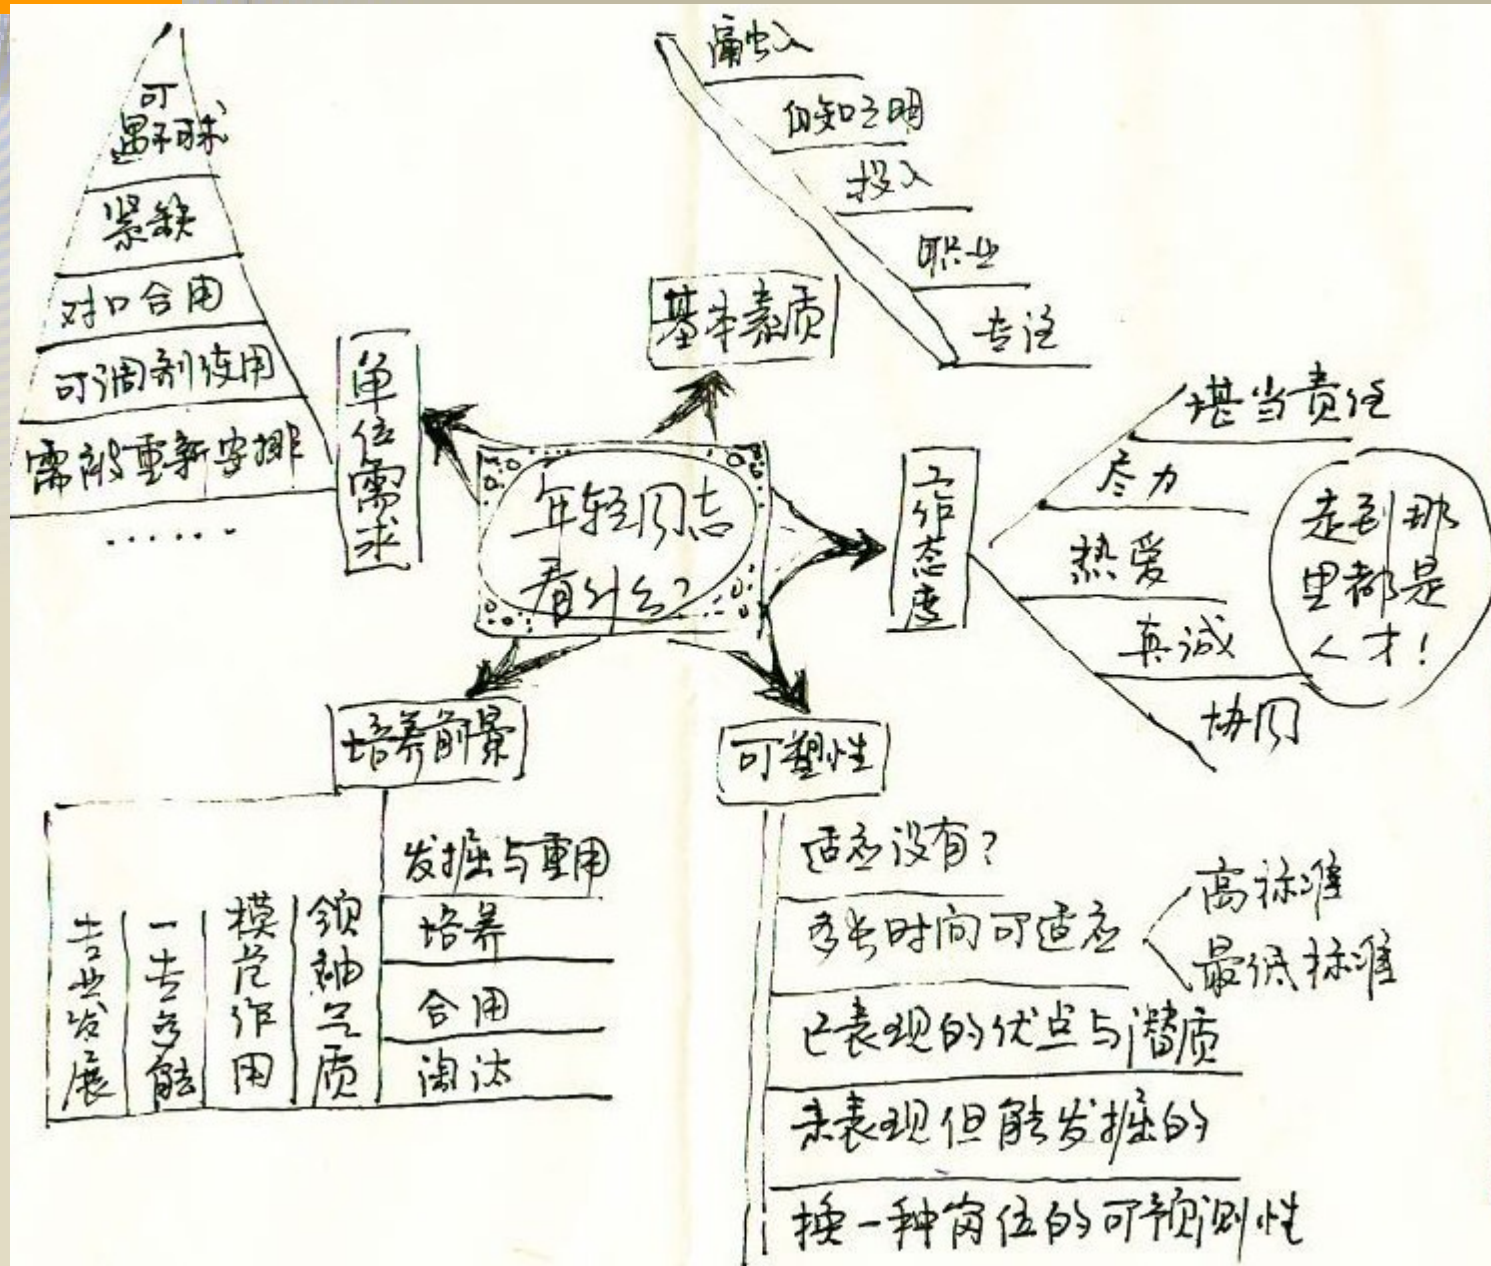 可
遇不可求
紧缺
对口合用
可调剂使用
需被重新安排
······
单位需求
融入
自知之明
投入
职业
专注
基本素质
年轻同志
看什么?
工作态度
堪当责任
尽力
热爱
真诚
协同
走到那
里都是
人才!
培养前景
专业发展
一专多能
模范作用
领袖气质
发掘与重用
培养
合用
淘汰
可塑性
适应没有?
多长时间可适应
高标准
最低标准
已表现的优点与潜质
未表现但能发掘的
换一种岗位的可预测性